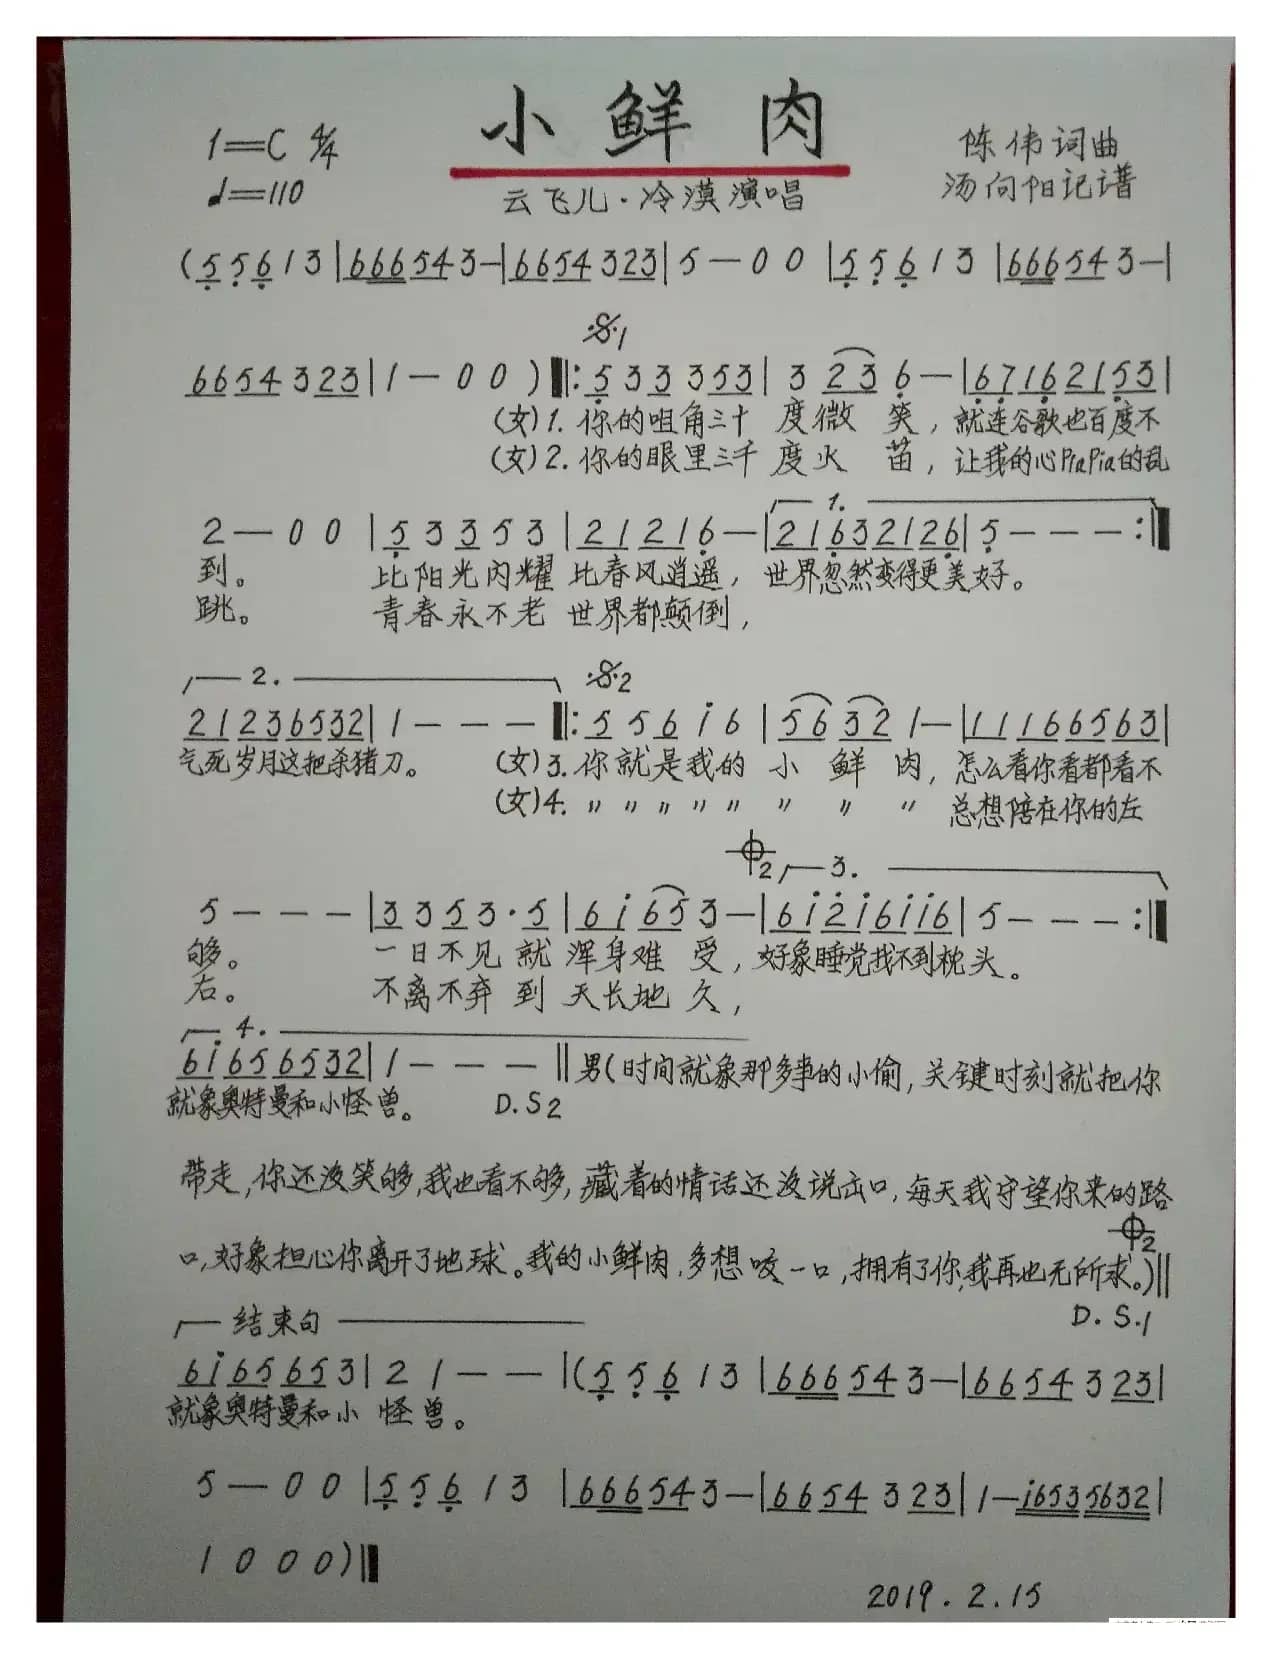 小鲜肉
1=C 4/4
♩=110
陈伟词曲
汤向阳记谱
云飞儿·冷漠演唱
(5 5 6 1 3 | 6 6 6 5 4 3 — | 6 6 5 4 3 2 3 | 5 — 0 0 | 5 5 6 1 3 | 6 6 6 5 4 3 — |
𝄋1
6 6 5 4 3 2 3 | 1 — 0 0 ) ‖: 5 3 3 3 5 3 | 3 2 3 6 — | 6 7 1 6 2 1 5 3 |
(女)1. 你的咀角三十 度微 笑，就连谷歌也百度不
(女)2. 你的眼里三千 度火 苗，让我的心PiaPia的乱
1.
2 — 0 0 | 5 3 3 5 3 | 2 1 2 1 6 — | 2 1 6 3 2 1 2 6 | 5 — — — :‖
到。 比阳光闪耀 比春风逍遥，世界忽然变得更美好。
跳。 青春永不老 世界都颠倒，
2. 𝄋2
2 1 2 3 6 5 3 2 | 1 — — — ‖: 5 5 6 i 6 | 5 6 3 2 1 — | 1 1 1 6 6 5 6 3 |
气死岁月这把杀猪刀。 (女)3. 你就是我的 小 鲜 肉，怎么看你看都看不
(女)4. 〃 〃 〃 〃 〃 〃 〃 〃 总想陪在你的左
𝄌2 3.
5 — — — | 3 3 5 3 · 5 | 6 i 6 5 3 — | 6 i 2 i 6 i i 6 | 5 — — — :‖
够。 一日不见 就 浑身难 受，好象睡觉找不到枕头。
右。 不离不弃 到 天长地 久，
4.
6 i 6 5 6 5 3 2 | 1 — — — ‖ 男(时间就象那多事的小偷，关键时刻就把你
就象奥特曼和小怪兽。 D.S2
带走，你还没笑够，我也看不够，藏着的情话还没说出口，每天我守望你来的路
𝄌2
口，好象担心你离开了地球。我的小鲜肉，多想咬一口，拥有了你，我再也无所求。)‖
结束句 D.S.1
6 i 6 5 6 5 3 | 2 1 — — | (5 5 6 1 3 | 6 6 6 5 4 3 — | 6 6 5 4 3 2 3 |
就象奥特曼和小 怪 兽。
5 — 0 0 | 5 5 6 1 3 | 6 6 6 5 4 3 — | 6 6 5 4 3 2 3 | 1 — i 6 5 3 5 6 3 2 |
1 0 0 0 )‖
2019.2.15